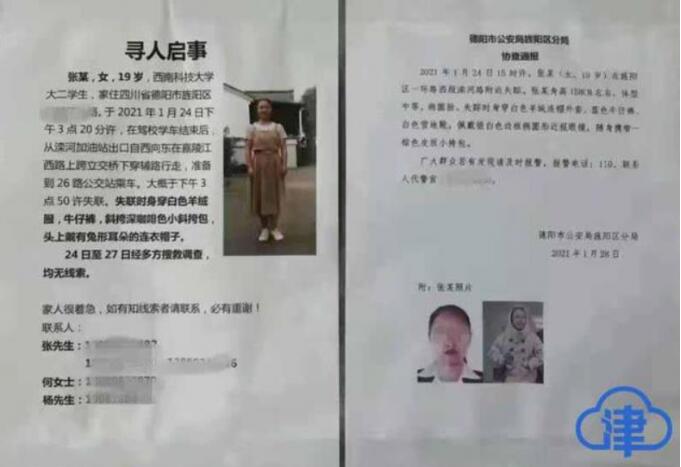 寻人启事
张某，女，19岁，西南科技大学
大二学生，家住四川省德阳市旌阳区
路。于2021年1月24日下
午3点20分许，在驾校学车结束后，
从滦河加油站出口自西向东在嘉陵江
西路上跨立交桥下穿辅路行走，准备
到26路公交站乘车。大概于下午3
点50许失联。失联时身穿白色羊绒
服，牛仔裤，斜挎深咖啡色小斜挎包，
头上戴有兔形耳朵的连衣帽子。
24日至27日经多方搜救调查，
均无线索。
家人很着急，如有知线索者请联系，必有重谢！
联系人：
张先生：
何女士：
杨先生：
德阳市公安局旌阳区分局
协查通报
2021年1月24日15时许，张某（女，19岁）在旌阳
区一环路西段滦河路附近失踪。张某身高158CM左右，体型
中等，椭圆脸，失踪时身穿白色羊绒连帽外套，蓝色牛仔裤，
白色雪地靴，佩戴银白色边框椭圆形近视眼镜，随身携带一
棕色皮质小挎包。
广大群众若有发现请及时报警，报警电话：110，联系
人代警官
德阳市公安局旌阳区分局
2021年1月28日
附：张某照片
津